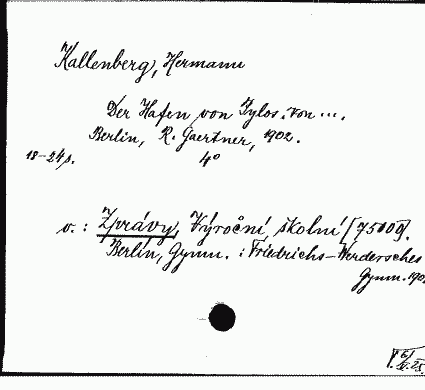 Kallenberg, Hermann
Der Hafen von Pylos. Von ....
Berlin, R. Gaertner, 1902.
18-24 p. 4°
v.: Zprávy, Výroční školní [75000].
Berlin, Gymn.: Friedrichs-Werdersches
Gymn. 190